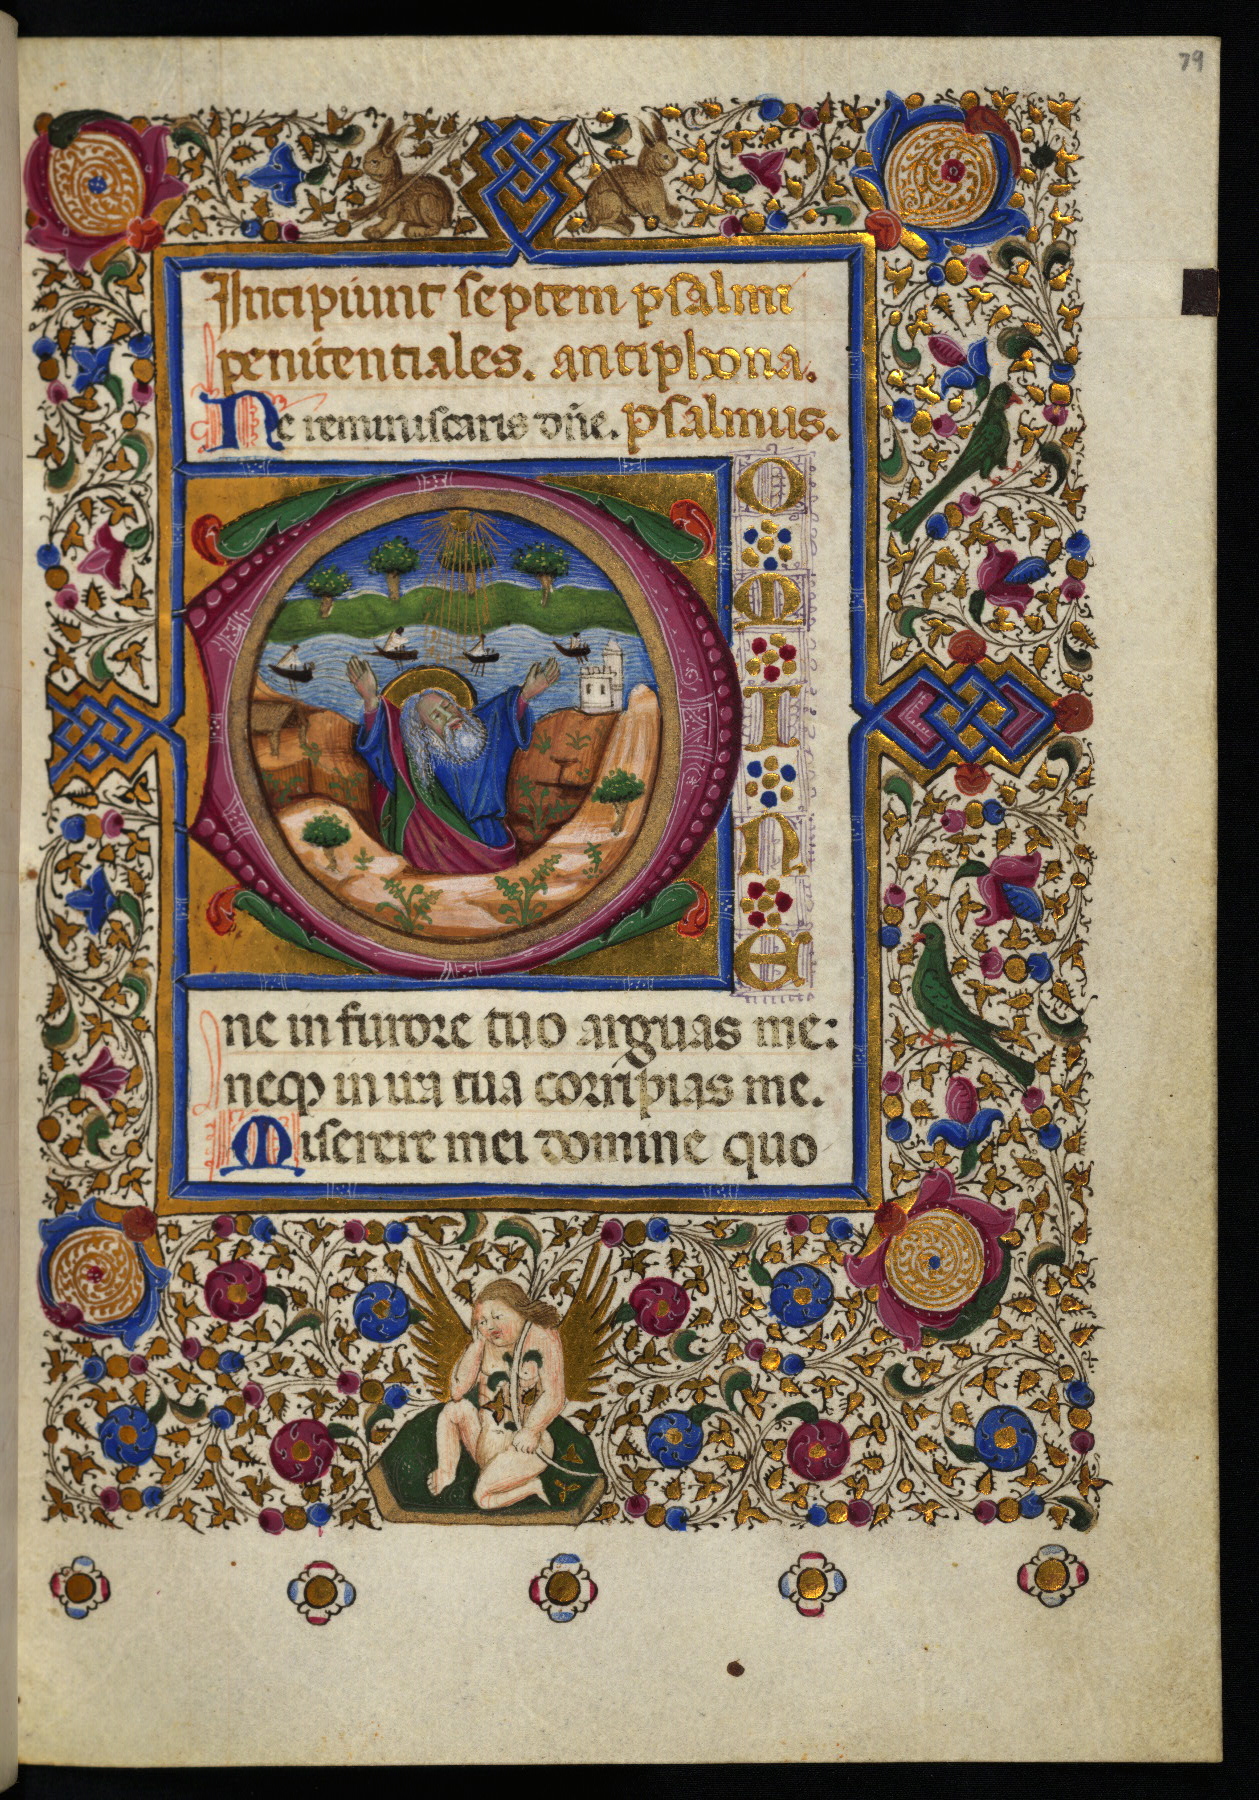 79
Incipiunt septem psalmi
penitentiales. antiphona.
Ne reminiscaris dñe. psalmus.
DOMINE
ne in furore tuo arguas me:
neqꝫ in ira tua corripias me.
Miserere mei domine quo